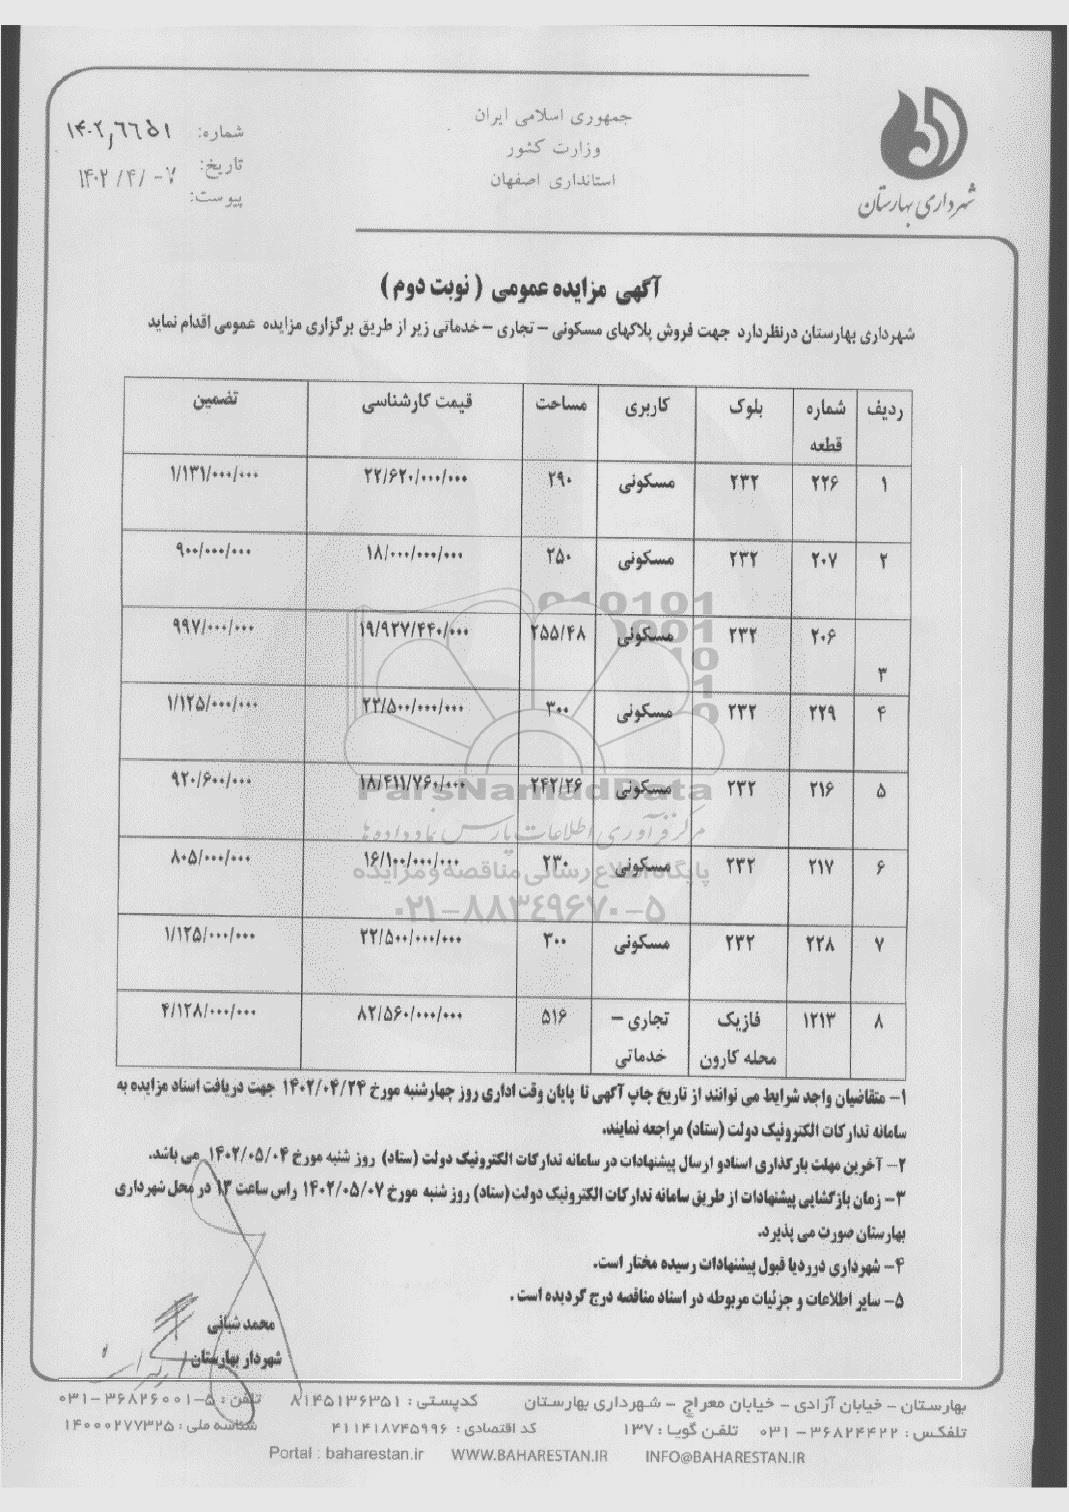 جمهوری اسلامی ایران
وزارت کشور
استانداری اصفهان
شماره: ۱۴۰۲٫۶۶۵۱
تاریخ: ۱۴۰۲/۴/-۷
پیوست:
شهرداری بهارستان
آگهی مزایده عمومی ( نوبت دوم )
شهرداری بهارستان درنظردارد جهت فروش پلاکهای مسکونی – تجاری – خدماتی زیر از طریق برگزاری مزایده عمومی اقدام نماید
ردیف شماره قطعه بلوک کاربری مساحت قیمت کارشناسی تضمین
۱ ۲۲۶ ۲۳۲ مسکونی ۲۹۰ ۲۲/۶۲۰/۰۰۰/۰۰۰ ۱/۱۳۱/۰۰۰/۰۰۰
۲ ۲۰۷ ۲۳۲ مسکونی ۲۵۰ ۱۸/۰۰۰/۰۰۰/۰۰۰ ۹۰۰/۰۰۰/۰۰۰
۳ ۲۰۶ ۲۳۲ مسکونی ۲۵۵/۴۸ ۱۹/۹۲۷/۴۴۰/۰۰۰ ۹۹۷/۰۰۰/۰۰۰
۴ ۲۲۹ ۲۳۲ مسکونی ۳۰۰ ۲۲/۵۰۰/۰۰۰/۰۰۰ ۱/۱۲۵/۰۰۰/۰۰۰
۵ ۲۱۶ ۲۳۲ مسکونی ۲۴۲/۲۶ ۱۸/۴۱۱/۷۶۰/۰۰۰ ۹۲۰/۶۰۰/۰۰۰
۶ ۲۱۷ ۲۳۲ مسکونی ۲۳۰ ۱۶/۱۰۰/۰۰۰/۰۰۰ ۸۰۵/۰۰۰/۰۰۰
۷ ۲۲۸ ۲۳۲ مسکونی ۳۰۰ ۲۲/۵۰۰/۰۰۰/۰۰۰ ۱/۱۲۵/۰۰۰/۰۰۰
۸ ۱۲۱۳ فازیک محله کارون تجاری – خدماتی ۵۱۶ ۸۲/۵۶۰/۰۰۰/۰۰۰ ۴/۱۲۸/۰۰۰/۰۰۰
ParsNamadData
مرکز فرآوری اطلاعات پارس نماد داده ها
پایگاه اطلاع رسانی مناقصه و مزایده
۰۲۱-۸۸۳۴۹۶۷۰-۵
۱- متقاضیان واجد شرایط می توانند از تاریخ چاپ آگهی تا پایان وقت اداری روز چهارشنبه مورخ ۱۴۰۲/۰۴/۲۴ جهت دریافت اسناد مزایده به
سامانه تدارکات الکترونیک دولت (ستاد) مراجعه نمایند.
۲- آخرین مهلت بارگذاری اسنادو ارسال پیشنهادات در سامانه تدارکات الکترونیک دولت (ستاد) روز شنبه مورخ ۱۴۰۲/۰۵/۰۴ می باشد.
۳- زمان بازگشایی پیشنهادات از طریق سامانه تدارکات الکترونیک دولت (ستاد) روز شنبه مورخ ۱۴۰۲/۰۵/۰۷ راس ساعت ۱۳ در محل شهرداری
بهارستان صورت می پذیرد.
۴- شهرداری درردیا قبول پیشنهادات رسیده مختار است.
۵- سایر اطلاعات و جزئیات مربوطه در اسناد مناقصه درج گردیده است .
محمد شبانی
شهردار بهارستان
بهارستان - خیابان آزادی - خیابان معراج - شهرداری بهارستان کدپستی : ۸۱۴۵۱۳۶۳۵۱ تلفن : ۵-۳۶۸۲۶۰۰۱-۰۳۱
تلفکس : ۳۶۸۲۴۴۲۲ - ۰۳۱ تلفن گویا : ۱۳۷ کد اقتصادی : ۴۱۱۴۱۸۷۴۵۹۹۶ شناسه ملی : ۱۴۰۰۰۲۷۷۳۲۵
Portal : baharestan.ir WWW.BAHARESTAN.IR INFO@BAHARESTAN.IR